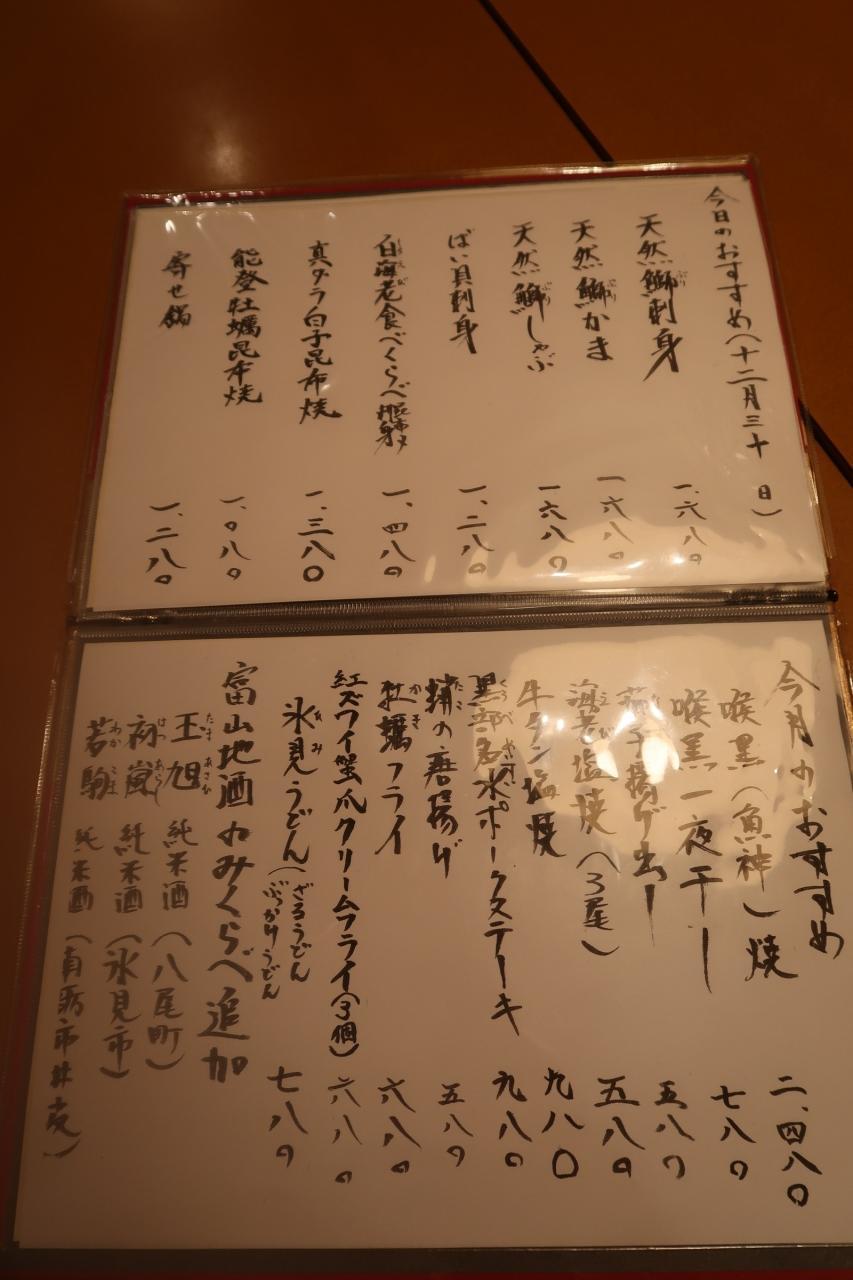 今日のおすすめ(十二月三十 日)
天然鰤刺身 一、六八〇
天然鰤かま 一六八〇
天然鰤しゃぶ 一六八〇
ばい貝刺身 一、二八〇
白海老食べくらべ 一、四八〇
真ダラ白子昆布焼 一、三八〇
能登牡蠣昆布焼 一、〇八〇
寄せ鍋 一、二八〇
今月のおすすめ
喉黒(魚神)焼 二、四八〇
喉黒一夜干し 七八〇
茄子揚げ出し 五八〇
海老塩焼(3尾) 五八〇
牛タン塩焼 九八〇
黒部名水ポークステーキ 九八〇
蛸の唐揚げ 五八〇
牡蠣フライ 六八〇
紅ズワイ蟹爪クリームフライ(3個) 六八〇
氷見うどん(ざるうどん ぶっかけうどん 七八〇
富山地酒のみくらべ追加
玉旭 純米酒(八尾町)
初嵐 純米酒(氷見市)
若駒 純米酒(南砺市井波)